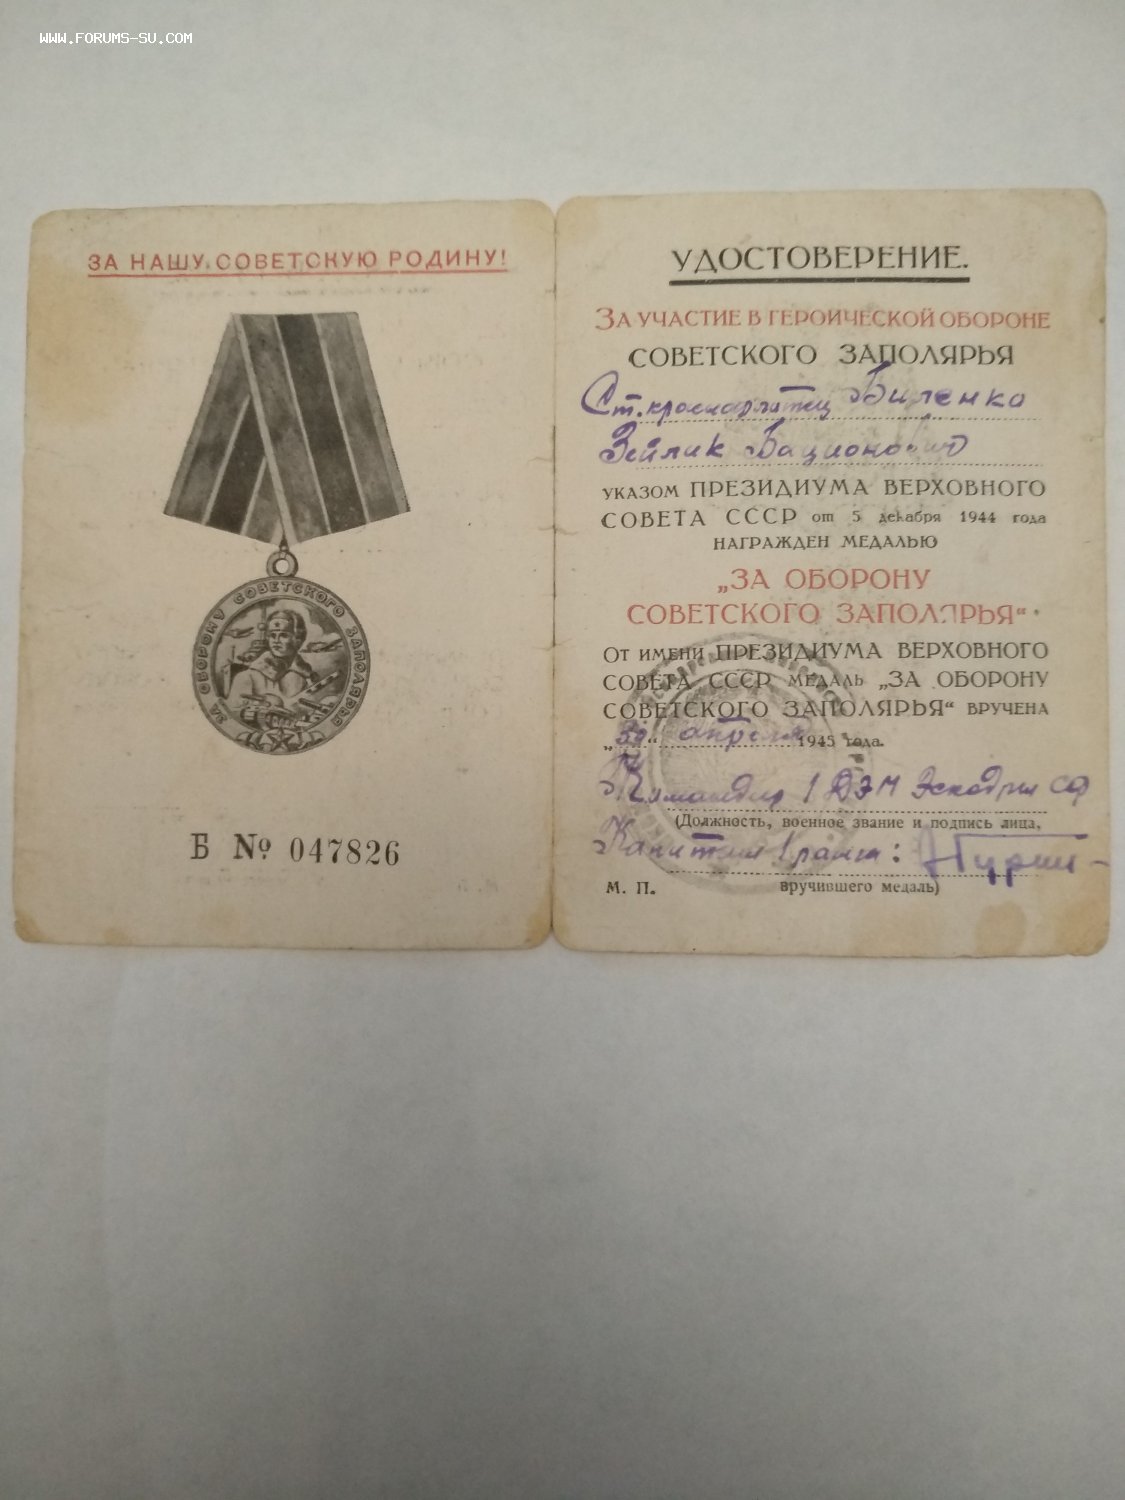 WWW.FORUMS-SU.COM
ЗА НАШУ СОВЕТСКУЮ РОДИНУ!
ЗА ОБОРОНУ СОВЕТСКОГО ЗАПОЛЯРЬЯ
Б № 047826
УДОСТОВЕРЕНИЕ.
ЗА УЧАСТИЕ В ГЕРОИЧЕСКОЙ ОБОРОНЕ
СОВЕТСКОГО ЗАПОЛЯРЬЯ
Ст. красноармеец Биленко
Зейлик
УКАЗОМ ПРЕЗИДИУМА ВЕРХОВНОГО
СОВЕТА СССР от 5 декабря 1944 года
НАГРАЖДЕН МЕДАЛЬЮ
„ЗА ОБОРОНУ
СОВЕТСКОГО ЗАПОЛЯРЬЯ“
ОТ ИМЕНИ ПРЕЗИДИУМА ВЕРХОВНОГО
СОВЕТА СССР МЕДАЛЬ „ЗА ОБОРОНУ
СОВЕТСКОГО ЗАПОЛЯРЬЯ“ ВРУЧЕНА
„30“ апреля 1945 года.
Командир 1 ДЭМ Эскадры СФ
(Должность, военное звание и подпись лица,
Капитан 1 ранга:
М. П. вручившего медаль)